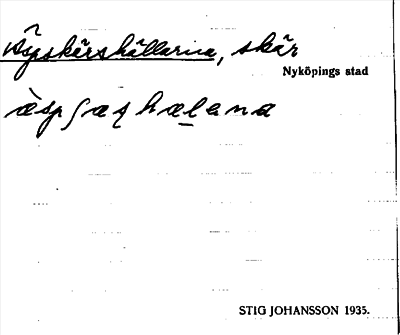 Äspskärshällarna, skär
Nyköpings stad
ä̀spʃæʂhæḷana
STIG JOHANSSON 1935.